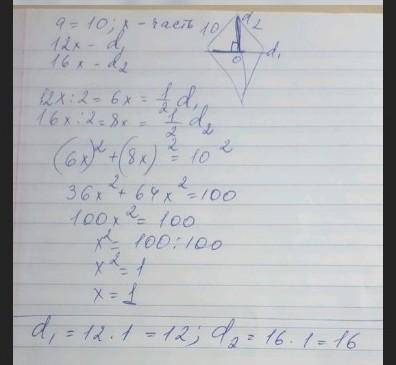 a = 10; x - часть
12x - d₁
16x - d₂
10
d₂
d₁
O
12x:2 = 6x = 1/2 d₁
16x:2 = 8x = 1/2 d₂
(6x)² + (8x)² = 10²
36x² + 64x² = 100
100x² = 100
x² = 100:100
x² = 1
x = 1
d₁ = 12 · 1 = 12; d₂ = 16 · 1 = 16